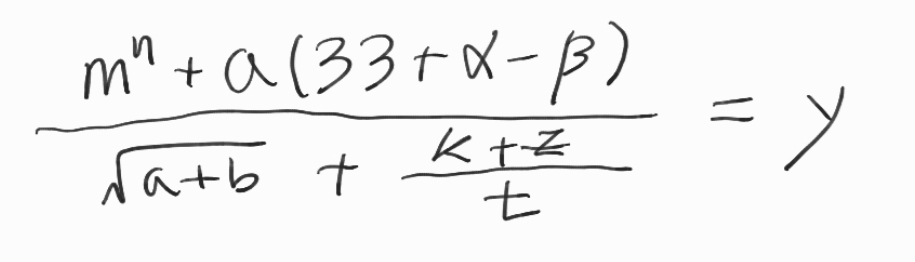 \frac{m^n + a(33 + α - β)}{\sqrt{a+b} + \frac{k+z}{t}} = y